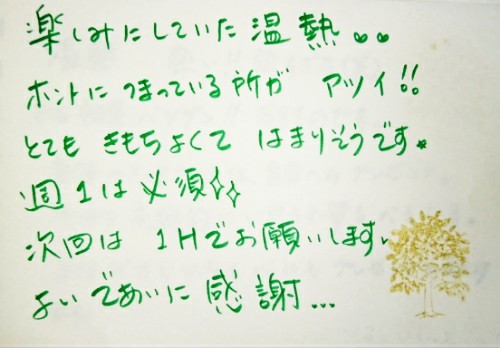 楽しみにしていた温熱。。
ホントに つまっている所が アツイ!!
とても きもちよくて はまりそうです。
週1は必須
次回は 1Hでお願いします。
よいであいに 感謝...